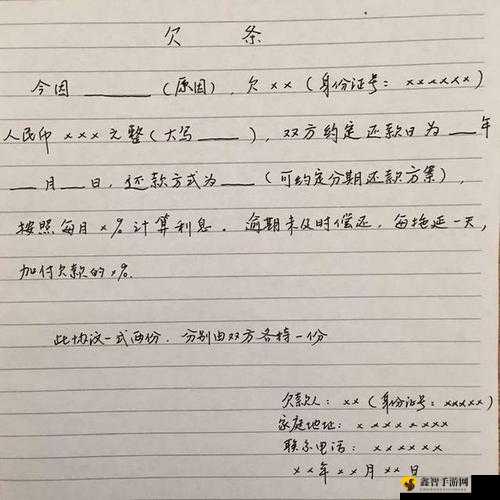 欠 条
今因 ______ (原因), 欠 ×× (身份证号: ××××××)
人民币 ××× 元整 (大写 ____ ), 双方约定还款日为 __ 年
__ 月 __ 日, 还款方式为 ___ (可约定分期还款方案),
按照每月 ×% 计算利息. 逾期未及时偿还, 每拖延一天,
加付欠款的 ×%.
此协议一式两份. 分别由双方各持一份
欠款人: ×× (身份证号: ×××××)
家庭地址: ××××××××
联系电话: ××××××
××年××月××日
鑫智手游网